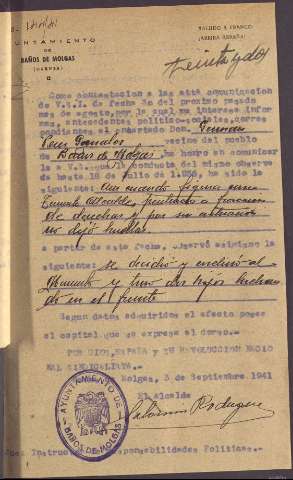 AYUNTAMIENTO
DE
BAÑOS DE MOLGAS
(ORENSE)
SALUDO A FRANCO
¡ARRIBA ESPAÑA!
Como contestacion a la atta comunicacion
de V.S.I. de fecha 30 del proximo pasado
mes de agosto, por la cual me interesa infor
mes, antecedentes politico-sociales, corres
pondientes al encartado Don
vecino del pueblo
de Baños de Molgas, me honro en comunicar
le a V. la conducta del mismo observa
da hasta 18 de julio de 1.936, ha sido la
siguiente: Aun cuando figura como
Teniente Alcalde, pertenecía a fracción
de derechas y por su actuación
no dejó huellas.
a partir de esta fecha, observó asimismo la
siguiente: se decidió y
Movimiento y tuvo dos hijos luchan
do en el frente
Segun datos adquiridos al efecto posee
el capital que se expresa al dorso.
POR DIOS, ESPAÑA y SU REVOLUCION NACIO
NAL SINDICALISTA.
Molgas, 3 de Septiembre 1941
El Alcalde
AYUNTAMIENTO DE
BAÑOS DE MOLGAS
Juez Instructor Responsabilidades Politicas.